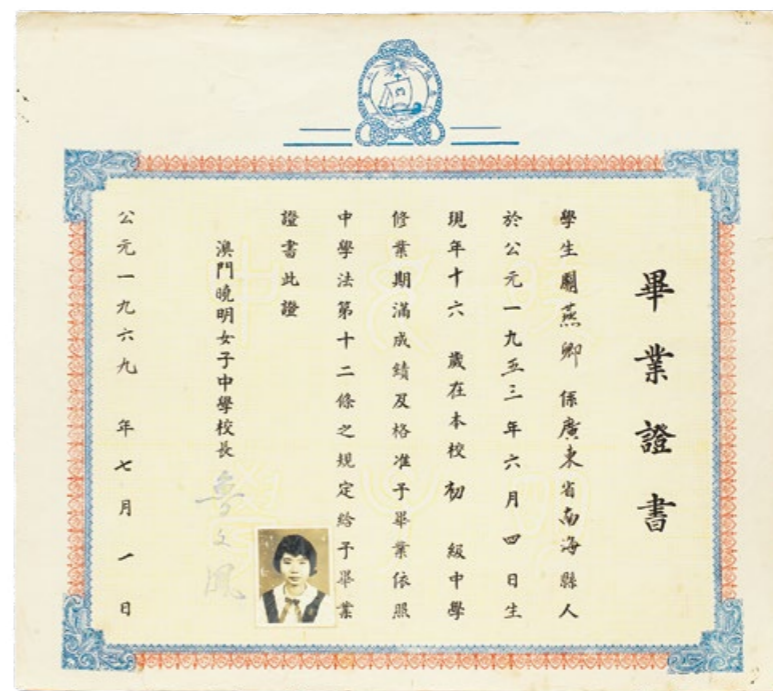 畢業證書
學生關燕卿係廣東省南海縣人
於公元一九五三年六月四日生
現年十六歲在本校初級中學
修業期滿成績及格准予畢業依照
中學法第十二條之規定給予畢業
證書此證
澳門曉明女子中學校長
公元一九六九年七月一日